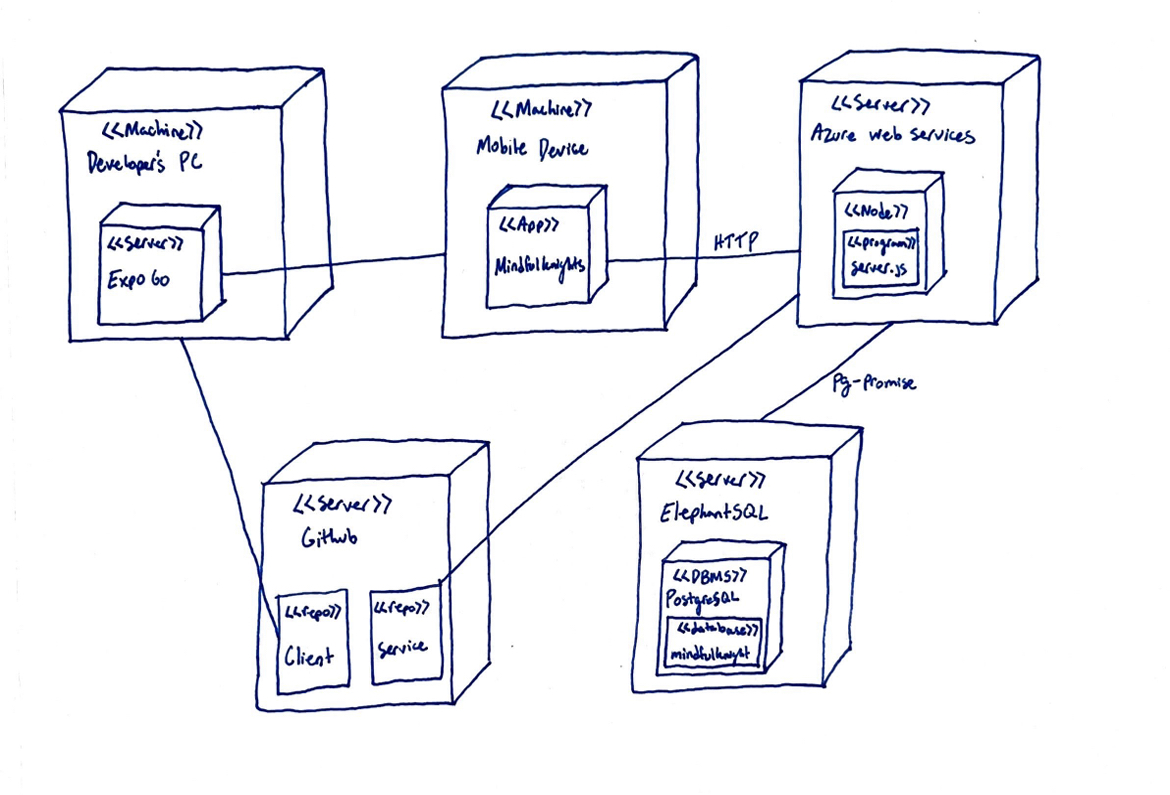 <<Machine>>
Developer's PC
<<Server>>
Expo Go
<<Machine>>
Mobile Device
<<App>>
Mindfulknights
HTTP
<<Server>>
Azure web services
<<Node>>
<<program>>
server.js
pg-promise
<<server>>
Github
<<repo>>
Client
<<repo>>
service
<<server>>
ElephantSQL
<<DBMS>>
PostgreSQL
<<database>>
mindfulknight